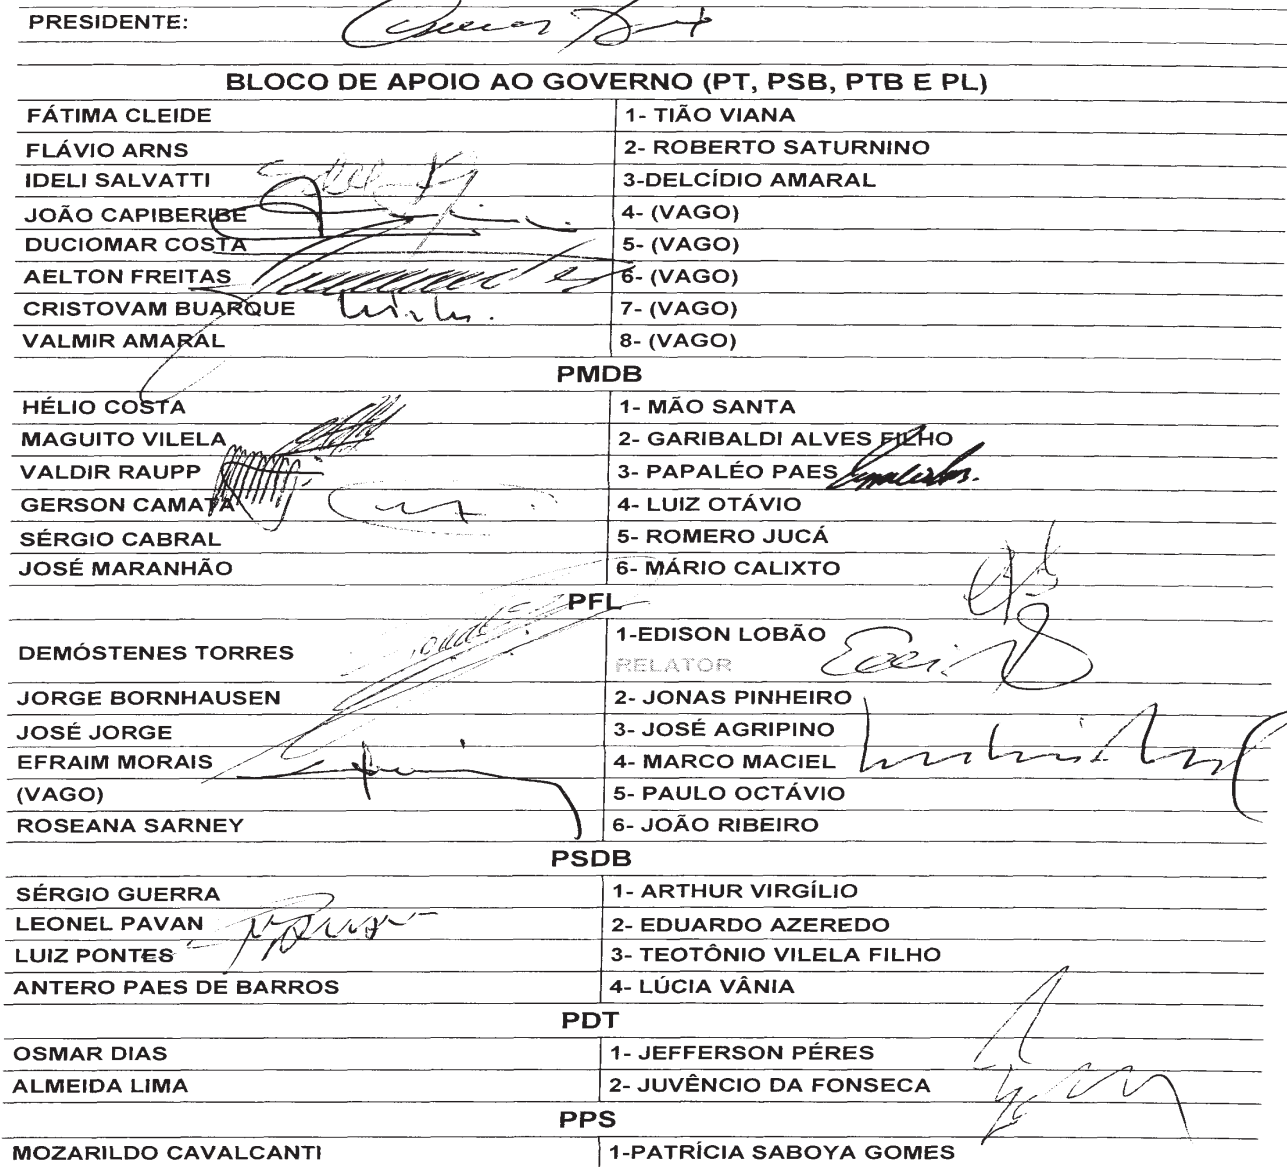 PRESIDENTE:
BLOCO DE APOIO AO GOVERNO (PT, PSB, PTB E PL)
FÁTIMA CLEIDE 1- TIÃO VIANA
FLÁVIO ARNS 2- ROBERTO SATURNINO
IDELI SALVATTI 3-DELCÍDIO AMARAL
JOÃO CAPIBERIBE 4- (VAGO)
DUCIOMAR COSTA 5- (VAGO)
AELTON FREITAS 6- (VAGO)
CRISTOVAM BUARQUE 7- (VAGO)
VALMIR AMARAL 8- (VAGO)
PMDB
HÉLIO COSTA 1- MÃO SANTA
MAGUITO VILELA 2- GARIBALDI ALVES FILHO
VALDIR RAUPP 3- PAPALÉO PAES
GERSON CAMATA 4- LUIZ OTÁVIO
SÉRGIO CABRAL 5- ROMERO JUCÁ
JOSÉ MARANHÃO 6- MÁRIO CALIXTO
PFL
DEMÓSTENES TORRES 1-EDISON LOBÃO
RELATOR
JORGE BORNHAUSEN 2- JONAS PINHEIRO
JOSÉ JORGE 3- JOSÉ AGRIPINO
EFRAIM MORAIS 4- MARCO MACIEL
(VAGO) 5- PAULO OCTÁVIO
ROSEANA SARNEY 6- JOÃO RIBEIRO
PSDB
SÉRGIO GUERRA 1- ARTHUR VIRGÍLIO
LEONEL PAVAN 2- EDUARDO AZEREDO
LUIZ PONTES 3- TEOTÔNIO VILELA FILHO
ANTERO PAES DE BARROS 4- LÚCIA VÂNIA
PDT
OSMAR DIAS 1- JEFFERSON PÉRES
ALMEIDA LIMA 2- JUVÊNCIO DA FONSECA
PPS
MOZARILDO CAVALCANTI 1-PATRÍCIA SABOYA GOMES